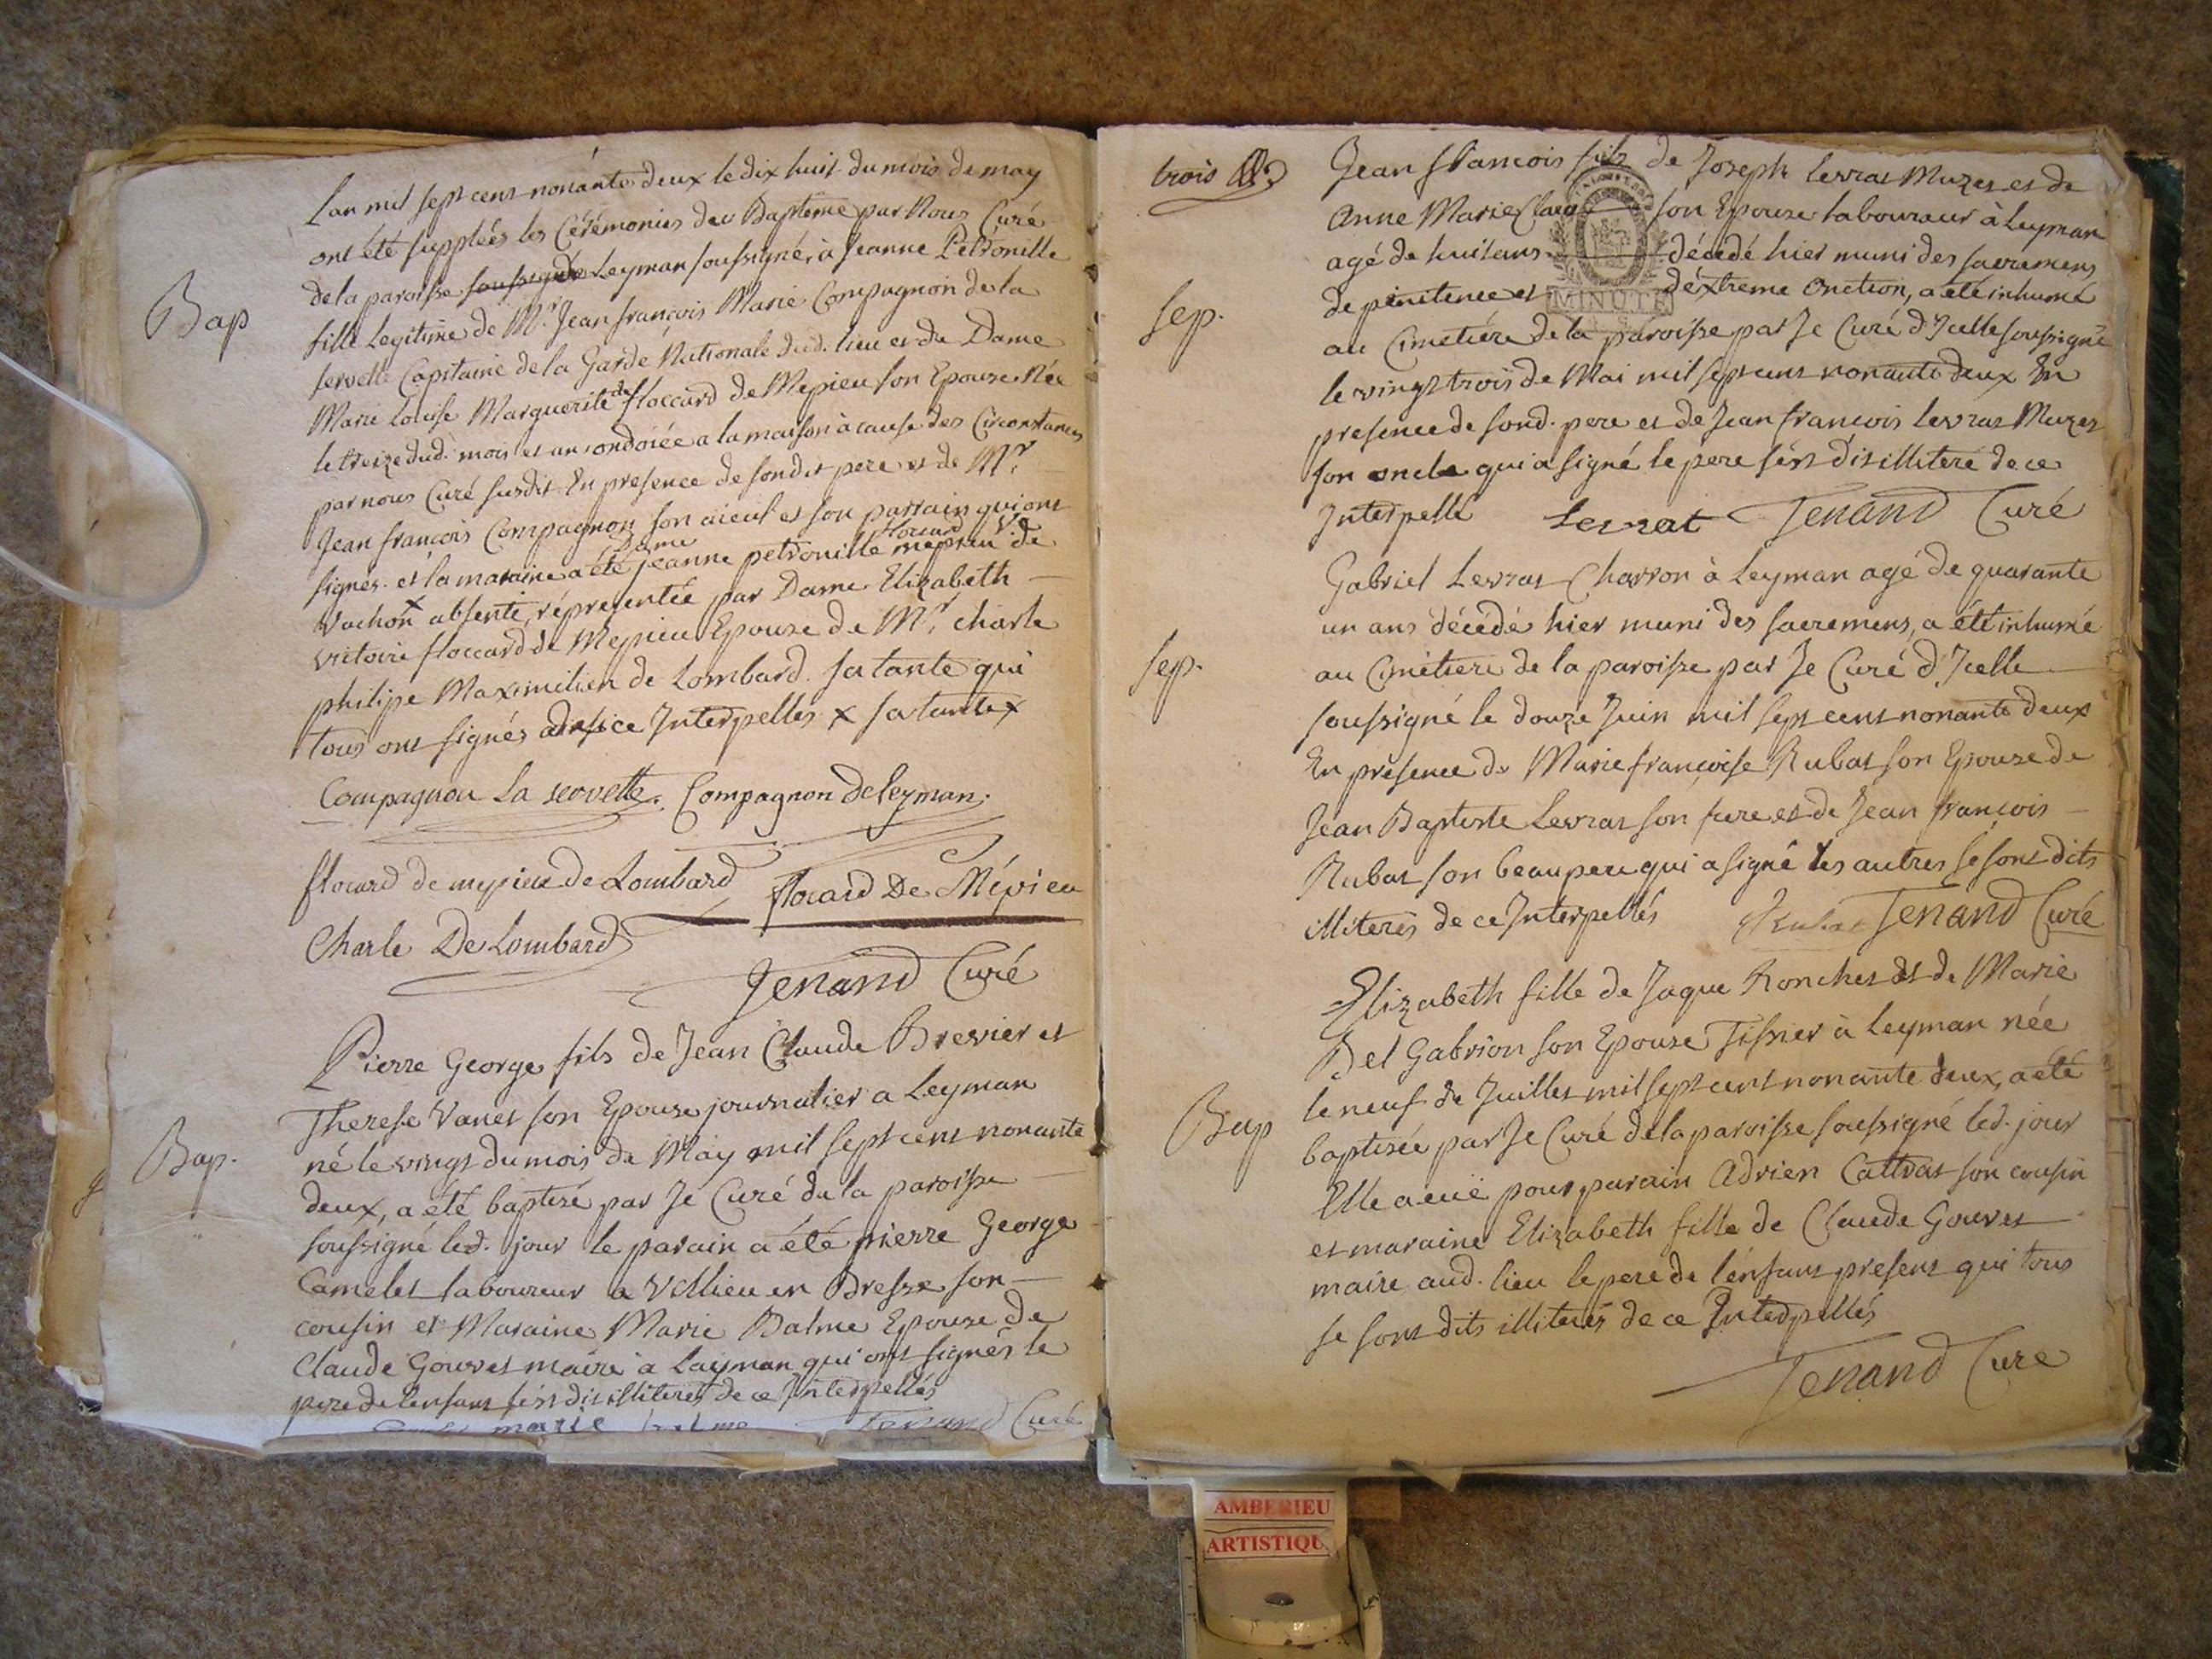 Bap
L'an mil sept cens nonante deux le dix huit du mois de may
ont été supplées les Cérémonies du Baptême par Nous Curé
de la paroisse soussigné de Leyman soussigné, à Jeanne Petronille
fille Legitime de Mr. Jean françois Marie Compagnon de la
servette Capitaine de la Garde Nationale dud. lieu et de Dame
Marie Louise Marguerite de floccard de Mepieu son Epouse Née
le treize dud. mois et an ondoiée a la maison à cause des Circonstances
par nous Curé susdit En presence de sondit pere et de Mr.
Jean françois Compagnon son aieul et son parrain qui ont
signés. et la maraine a été Dame jeanne petronille flocard mepieu Ve. de
Vachon x absente, réprésentée par Dame Elizabeth
victoire floccard de Mepieu Epouse de Mr. charle
philipe Maximilien de Lombard. sa tante qui
tous ont signés de ce Interpellés x sa tante x
Compagnon La servette. Compagnon de leyman.
flocard de mepieu de Lombard flocard De Mépieu
Charle De Lombard
Jenand Curé
Bap.
Pierre George fils de Jean Claude Brevier et
Therese Vanet son Epouse journalier a Leyman
né le vingt du mois de May mil sept cens nonante
deux, a été baptisé par Je Curé de la paroisse
soussigné led. jour le parain a été pierre George
Camelet laboureur a Villieu en Bresse son
cousin et Maraine Marie Balme Epouse de
Claude Gouvet maire a Layman qui ont signés le
pere de l'enfant s'est dit illiteré de ce Interpellés
marie balme Jenand Curé
trois
Sep.
Jean francois fils de Joseph Levrat Muzet et de
Anne Marie Clara son Epouse laboureur à Leyman
agé de huit ans décédé hier muni des sacremens
de pénitence et d'éxtreme Onction, a été inhumé
MINUTE
au Cimetiére de la paroisse par Je Curé d'Icelle soussigné
le vingt trois de Mai mil sept cens nonante deux En
presence de sond. pere et de Jean francois Levrat Muzet
son oncle qui a signé le pere s'est dit illiteré de ce
Interpellé Levrat Jenand Curé
Sep.
Gabriel Levrat Charron à Leyman agé de quarante
un ans décédé hier muni des sacremens, a été inhumé
au Cimétiere de la paroisse par Je Curé d'Icelle
soussigné le douze Juin mil sept cens nonante deux
En présence de Marie françoise Rubat son Epouse de
Jean Baptiste Levrat son frere et de Jean françois
Rubat son beaupere qui a signé les autres se sont dits
illiterés de ce Interpellés Rubat Jenand Curé
Bap
Elizabeth fille de Jaque Ronchet et de Marie
Bel Gabrion son Epouse Tissier à Leyman née
le neuf de Juillet mil sept cens nonante deux, a été
baptisée par Je Curé de la paroisse soussigné led. jour
Elle a eue pour parain Adrien Cattrat son cousin
et maraine Elizabeth fille de Claude Gouvet
maire aud. lieu le pere de l'énfant présent qui tous
se sont dits illiterés de ce Interpellés
Jenand Curé
AMBERIEU
ARTISTIQU